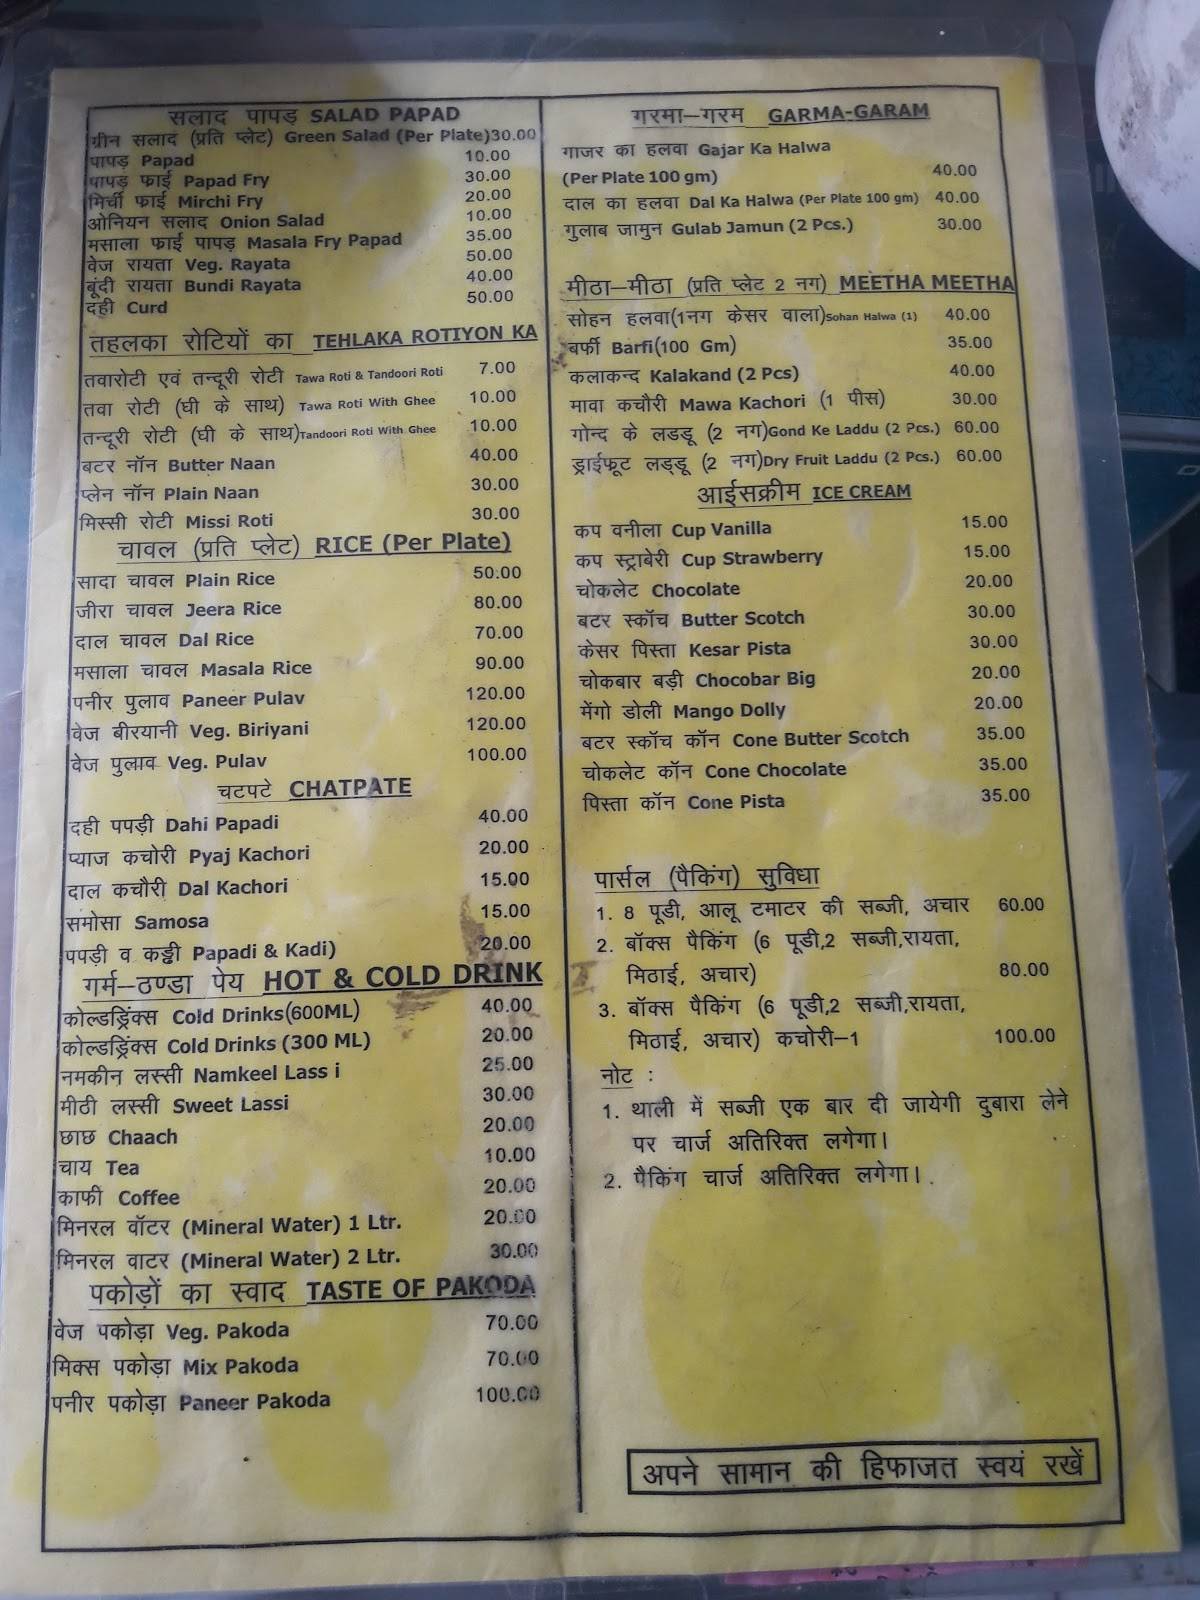 सलाद पापड़ SALAD PAPAD
ग्रीन सलाद (प्रति प्लेट) Green Salad (Per Plate) 30.00
पापड़ Papad 10.00
पापड़ फ्राई Papad Fry 30.00
मिर्ची फ्राई Mirchi Fry 20.00
ओनियन सलाद Onion Salad 10.00
मसाला फ्राई पापड़ Masala Fry Papad 35.00
वेज रायता Veg. Rayata 50.00
बूंदी रायता Bundi Rayata 40.00
दही Curd 50.00
तहलका रोटियों का TEHLAKA ROTIYON KA
तवारोटी एवं तन्दूरी रोटी Tawa Roti & Tandoori Roti 7.00
तवा रोटी (घी के साथ) Tawa Roti With Ghee 10.00
तन्दूरी रोटी (घी के साथ) Tandoori Roti With Ghee 10.00
बटर नॉन Butter Naan 40.00
प्लेन नॉन Plain Naan 30.00
मिस्सी रोटी Missi Roti 30.00
चावल (प्रति प्लेट) RICE (Per Plate)
सादा चावल Plain Rice 50.00
जीरा चावल Jeera Rice 80.00
दाल चावल Dal Rice 70.00
मसाला चावल Masala Rice 90.00
पनीर पुलाव Paneer Pulav 120.00
वेज बीरयानी Veg. Biriyani 120.00
वेज पुलाव Veg. Pulav 100.00
चटपटे CHATPATE
दही पपड़ी Dahi Papadi 40.00
प्याज कचोरी Pyaj Kachori 20.00
दाल कचौरी Dal Kachori 15.00
समोसा Samosa 15.00
पपड़ी व कड्ढी Papadi & Kadi) 20.00
गर्म–ठण्डा पेय HOT & COLD DRINK
कोल्डड्रिंक्स Cold Drinks(600ML) 40.00
कोल्डड्रिंक्स Cold Drinks (300 ML) 20.00
नमकीन लस्सी Namkeel Lass i 25.00
मीठी लस्सी Sweet Lassi 30.00
छाछ Chaach 20.00
चाय Tea 10.00
काफी Coffee 20.00
मिनरल वॉटर (Mineral Water) 1 Ltr. 20.00
मिनरल वाटर (Mineral Water) 2 Ltr. 30.00
पकोड़ों का स्वाद TASTE OF PAKODA
वेज पकोड़ा Veg. Pakoda 70.00
मिक्स पकोड़ा Mix Pakoda 70.00
पनीर पकोड़ा Paneer Pakoda 100.00
गरमा–गरम GARMA-GARAM
गाजर का हलवा Gajar Ka Halwa
(Per Plate 100 gm) 40.00
दाल का हलवा Dal Ka Halwa (Per Plate 100 gm) 40.00
गुलाब जामुन Gulab Jamun (2 Pcs.) 30.00
मीठा–मीठा (प्रति प्लेट 2 नग) MEETHA MEETHA
सोहन हलवा(1नग केसर वाला) Sohan Halwa (1) 40.00
बर्फी Barfi(100 Gm) 35.00
कलाकन्द Kalakand (2 Pcs) 40.00
मावा कचौरी Mawa Kachori (1 पीस) 30.00
गोन्द के लडडू (2 नग)Gond Ke Laddu (2 Pcs.) 60.00
ड्राईफूट लड्डू (2 नग)Dry Fruit Laddu (2 Pcs.) 60.00
आईसक्रीम ICE CREAM
कप वनीला Cup Vanilla 15.00
कप स्ट्राबेरी Cup Strawberry 15.00
चोकलेट Chocolate 20.00
बटर स्कॉच Butter Scotch 30.00
केसर पिस्ता Kesar Pista 30.00
चोकबार बड़ी Chocobar Big 20.00
मेंगो डोली Mango Dolly 20.00
बटर स्कॉच कॉन Cone Butter Scotch 35.00
चोकलेट कॉन Cone Chocolate 35.00
पिस्ता कॉन Cone Pista 35.00
पार्सल (पैकिंग) सुविधा
1. 8 पूडी, आलू टमाटर की सब्जी, अचार 60.00
2. बॉक्स पैकिंग (6 पूडी,2 सब्जी,रायता,
मिठाई, अचार) 80.00
3. बॉक्स पैकिंग (6 पूडी,2 सब्जी,रायता,
मिठाई, अचार) कचोरी–1 100.00
नोट :
1. थाली में सब्जी एक बार दी जायेगी दुबारा लेने
पर चार्ज अतिरिक्त लगेगा।
2. पैकिंग चार्ज अतिरिक्त लगेगा।
अपने सामान की हिफाजत स्वयं रखें